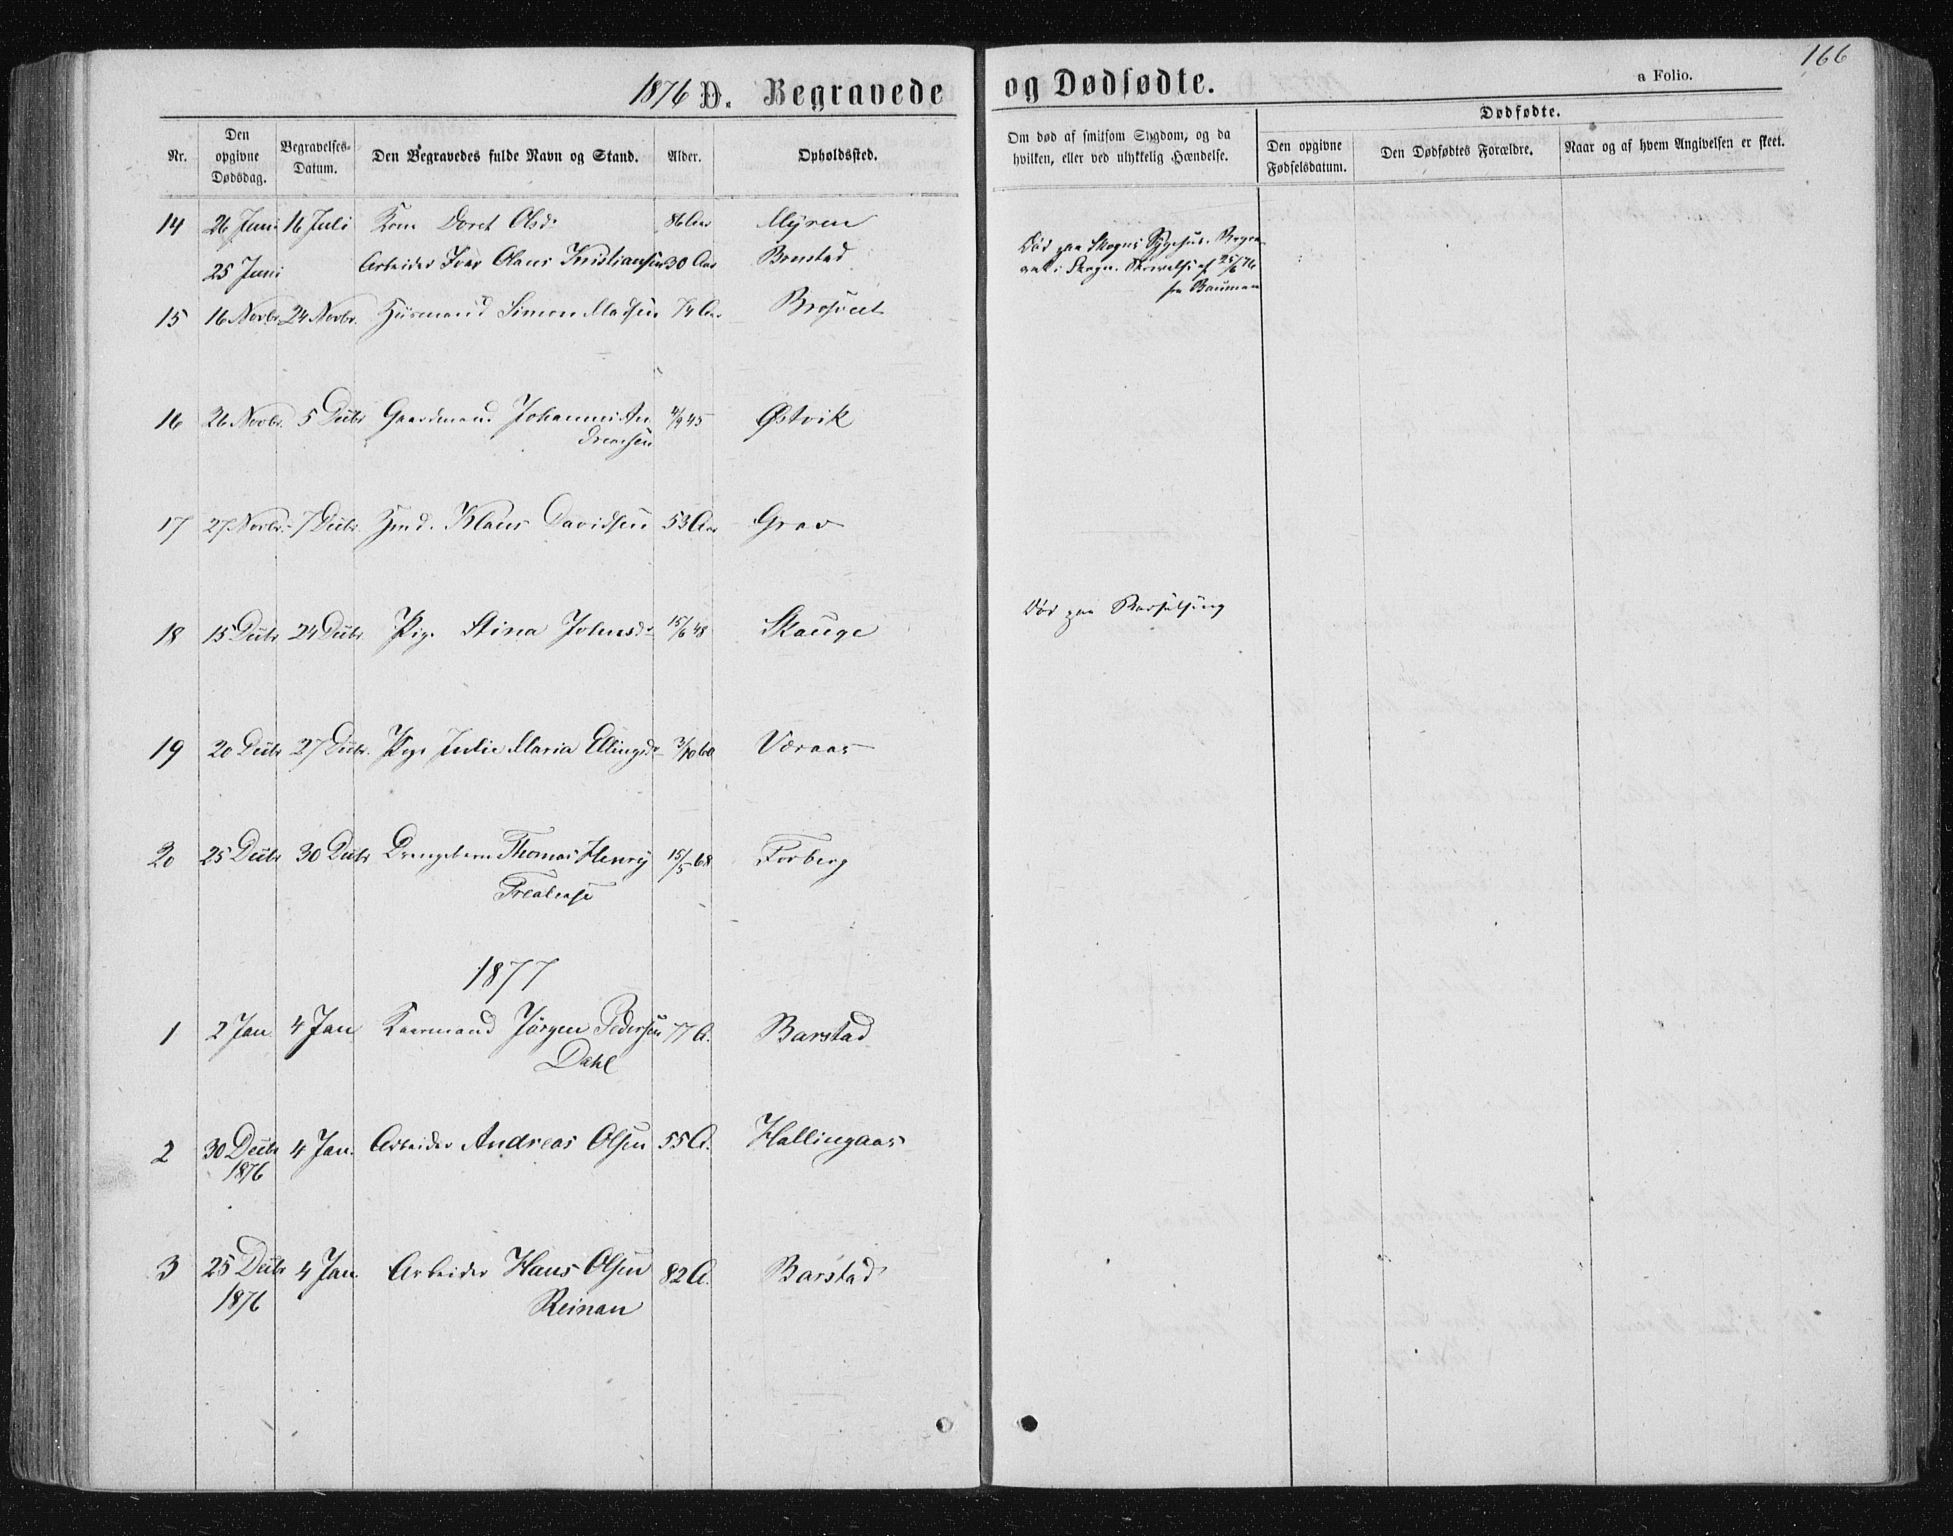 1876 D. Begravede og Dødsødte.
a Folio. 166
Nr. Den opgivne Dødsdag. Begravelses-Datum. Den Begravedes fulde Navn og Stand. Alder. Opholdssted. Om død af smitsom Sygdom, og da hvilken, eller ved ulykkelig Hændelse. Dødfødte. Den opgivne Fødselsdatum. Den Dødfødtes Forældre. Naar og af hvem Angivelsen er skeet.
14 26 Juni 16 Juli Kone Doret Olsd. 86 Aar Myren
25 Juni Arbeider Iver Olaus Kristiansen 30 Aar Brustad Død paa Skogns Sygehus. Begra-
vet i Skogn. 25/6 76
fra Bauman
15 16 Novbr. 24 Novbr. Husmand Simon Madsen 74 Aar
16 26 Novbr. 5 Decbr Gaardmand Johannes An- 4/9 45 Østvik
dreasen
17 27 Novbr. 7 Decbr. Hmd. Klaus Davidsen 53 Aar Grav
18 15 Decbr 24 Decbr. Pige Stina Johnsd. 15/6 48 Skauge Død paa Barselseng
19 20 Decbr 27 Decbr. Pige Julie Maria Ellingsd. 3/10 60 Væraas
20 25 Decbr 30 Decbr Drengebarn Thomas Henry 15/5 68 Forberg
1877
1 2 Jan. 4 Jan Kaarmand Jørgen Pedersen 77 A. Barstad
Dahl
2 30 Decbr 4 Jan. Arbeider Andreas Olsen 55 A. Hallingaas
1876
3 25 Decbr 4 Jan. Arbeider Hans Olsen 82 A. Barstad
1876 Reinan